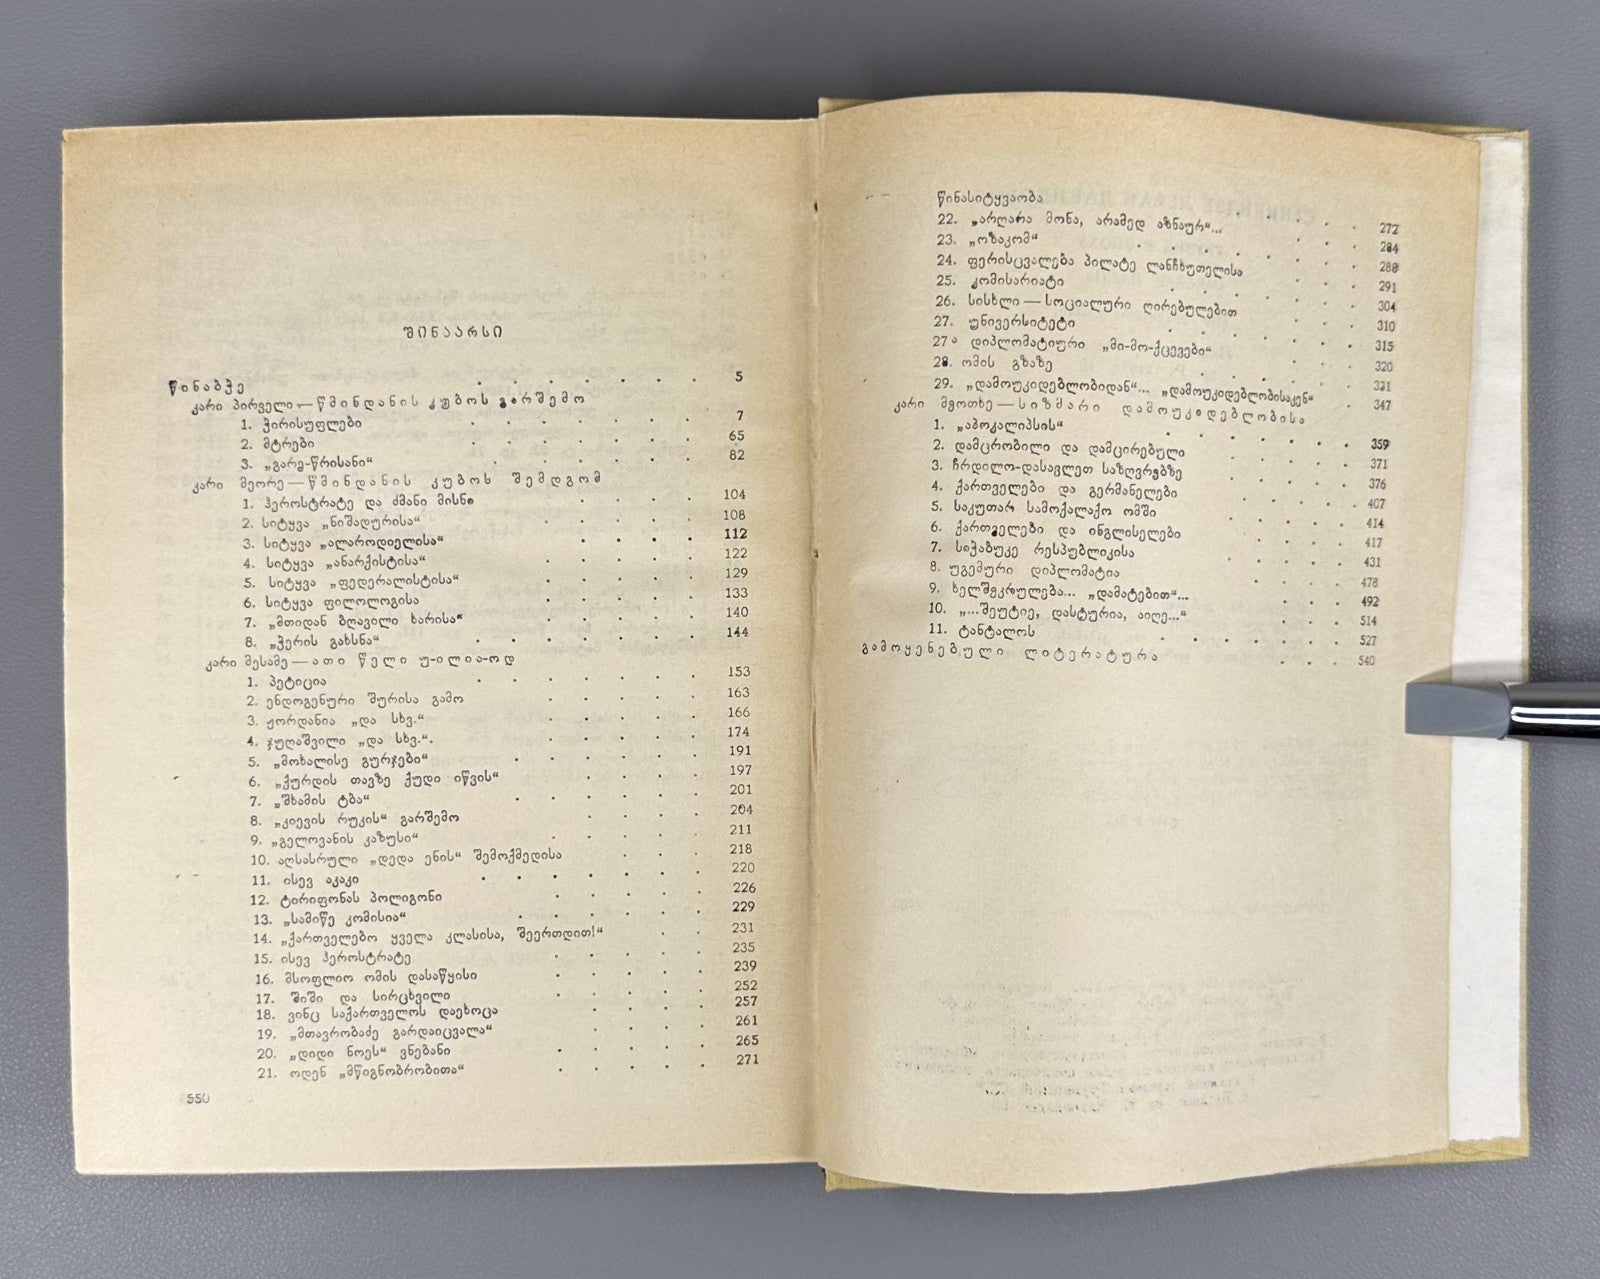 შინაარსი
წინაბჭე . . . . . . . 5
კარი პირველი — წმინდანის კუბოს გარშემო
1. ჭირისუფლები . . . . . . . 7
2. მტრები . . . . . . . 65
3. „გარე-წრისანი“ . . . . . . 82
კარი მეორე — წმინდანის კუბოს შემდგომ
1. ჰეროსტრატე და ძმანი მისნი . . . . 104
2. სიტყვა „ნიშადურისა“ . . . . . 108
3. სიტყვა „ალაროდიელისა“ . . . . 112
4. სიტყვა „ანარქისტისა“ . . . . . 122
5. სიტყვა „ფედერალისტისა“ . . . . 129
6. სიტყვა ფილოლოგისა . . . . . 133
7. „მთიდან ბღავილი ხარისა“ . . . . 140
8. „ჭერის გახსნა“ . . . . . . . 144
კარი მესამე — ათი წელი უ-ილია-ოდ
1. პეტიცია . . . . . . . 153
2. ენდოგენური შურისა გამო . . . . . 163
3. ჟორდანია „და სხვ.“ . . . . . 166
4. ჯუღაშვილი „და სხვ.“. . . . . . 174
5. „მოხალისე გურჯები“ . . . . . . 191
6. „ქურდის თავზე ქუდი იწვის“ . . . . 197
7. „შხამის ტბა“ . . . . . . 201
8. „კიევის რუკის“ გარშემო . . . . 204
9. „გელოვანის კაზუსი“ . . . . . 211
10. აღსასრული „დედა ენის“ შემოქმედისა . . . 218
11. ისევ აკაკი . . . . . . . 220
12. ტირიფონას პოლიგონი . . . . . 226
13. „სამიწე კომისია“ . . . . . . 229
14. „ქართველებო ყველა კლასისა, შეერთდით!“ . . 231
15. ისევ ჰეროსტრატე . . . . . 235
16. მსოფლიო ომის დასაწყისი . . . . . 239
17. შიში და სირცხვილი . . . . . 252
18. ვინც საქართველოს დაეხოცა . . . . 257
19. „მთავრობაძე გარდაიცვალა“ . . . . 261
20. „დიდი ნოეს“ ვნებანი . . . . . 265
21. ოდენ „მწიგნობრობითა“ . . . . . 271
550
წინასიტყვაობა
22. „არღარა მონა, არამედ აზნაურ“... . . . 272
23. „ოზაკომ“ . . . . . . 284
24. ფერისცვალება პილატე ლანჩხუთელისა . . . 288
25. კომისარიატი . . . . . . 291
26. სისხლი — სოციალური ღირებულებით . . . 304
27. უნივერსიტეტი . . . . . . 310
27ა დიპლომატიური „მი-მო-ქცევები“ . . . 315
28. ომის გზაზე . . . . . . 320
29. „დამოუკიდებლობიდან“... „დამოუკიდებლობისაკენ“ . 331
კარი მეოთხე — სიზმარი დამოუკიდებლობისა . . 347
1. „აპოკალიპსის“
2. დამცრობილი და დამცირებული . . . . 359
3. ჩრდილო-დასავლეთ საზღვრებზე . . . . 371
4. ქართველები და გერმანელები . . . . 376
5. საკუთარ სამოქალაქო ომში . . . . 407
6. ქართველები და ინგლისელები . . . . 414
7. სიჭაბუკე რესპუბლიკისა . . . . 417
8. უგემური დიპლომატია . . . . . 431
9. ხელშეკრულება... „დამატებით“... . . . . 478
10. „...შეუტიე, დასტურია, აიღე...“ . . . 492
11. ტანტალოს . . . . . . . 514
527
გამოყენებული ლიტერატურა . . . 540